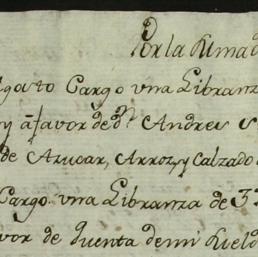 Por la Rima
Agosto Cargo vna Libranz
y a favor de dⁿ Andres S
de Azucar, Arroz, y Calzado
Cargo vna Libranza de 3
vor de Quenta de mi